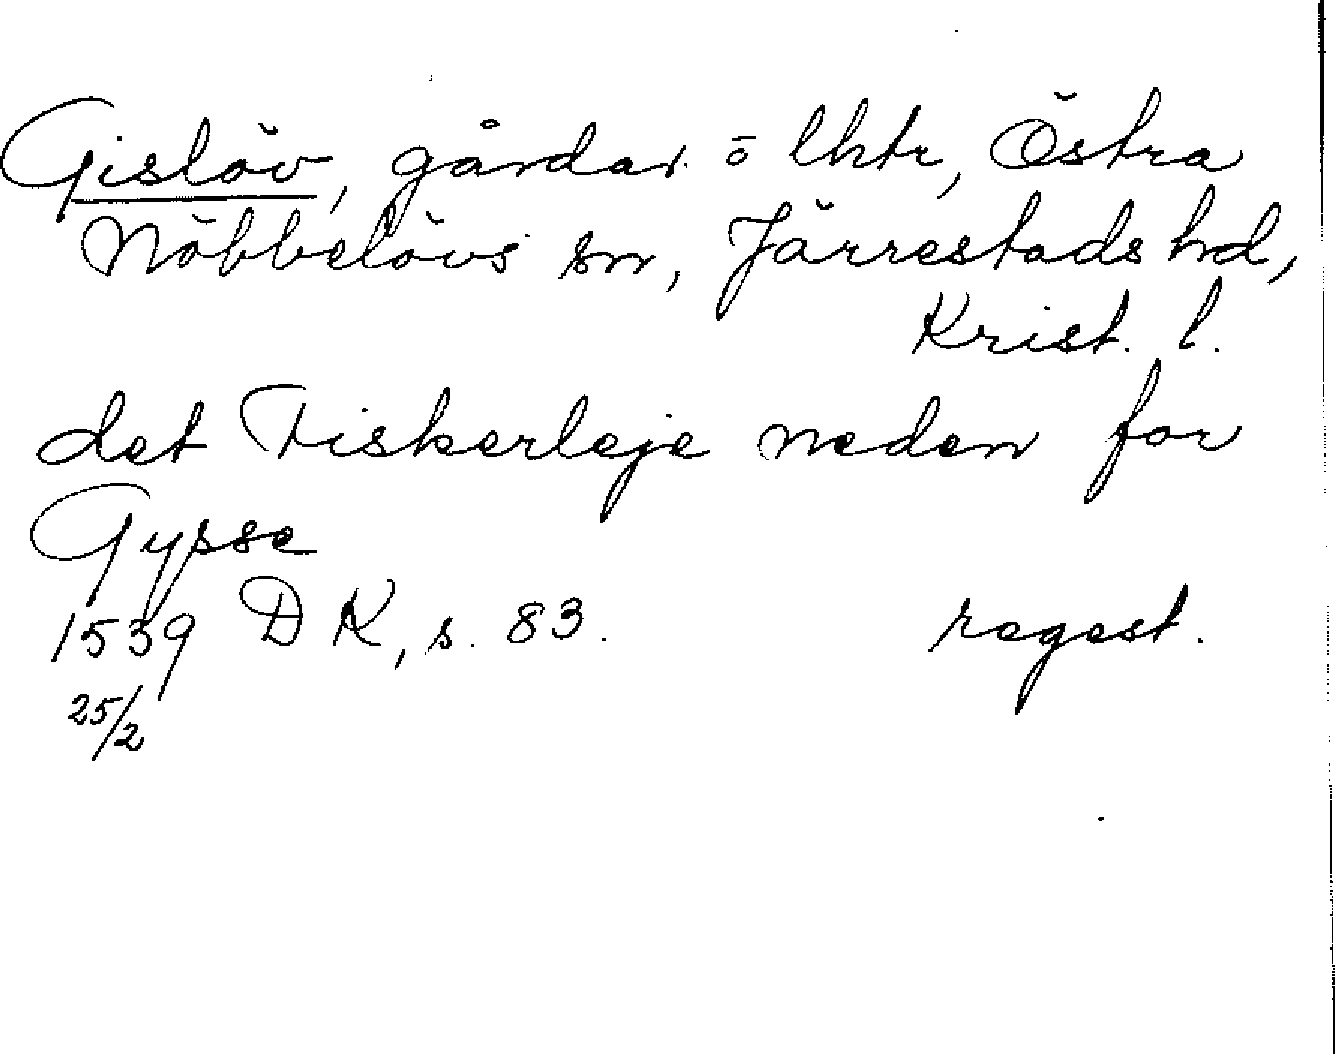 Gislöv, gårdar o lhtr, Östra
Nöbbelövs sn, Järrestads hd,
Krist. l.
det Fiskerleje neden for
Gysse
1539 DK, s. 83. regest.
25/2